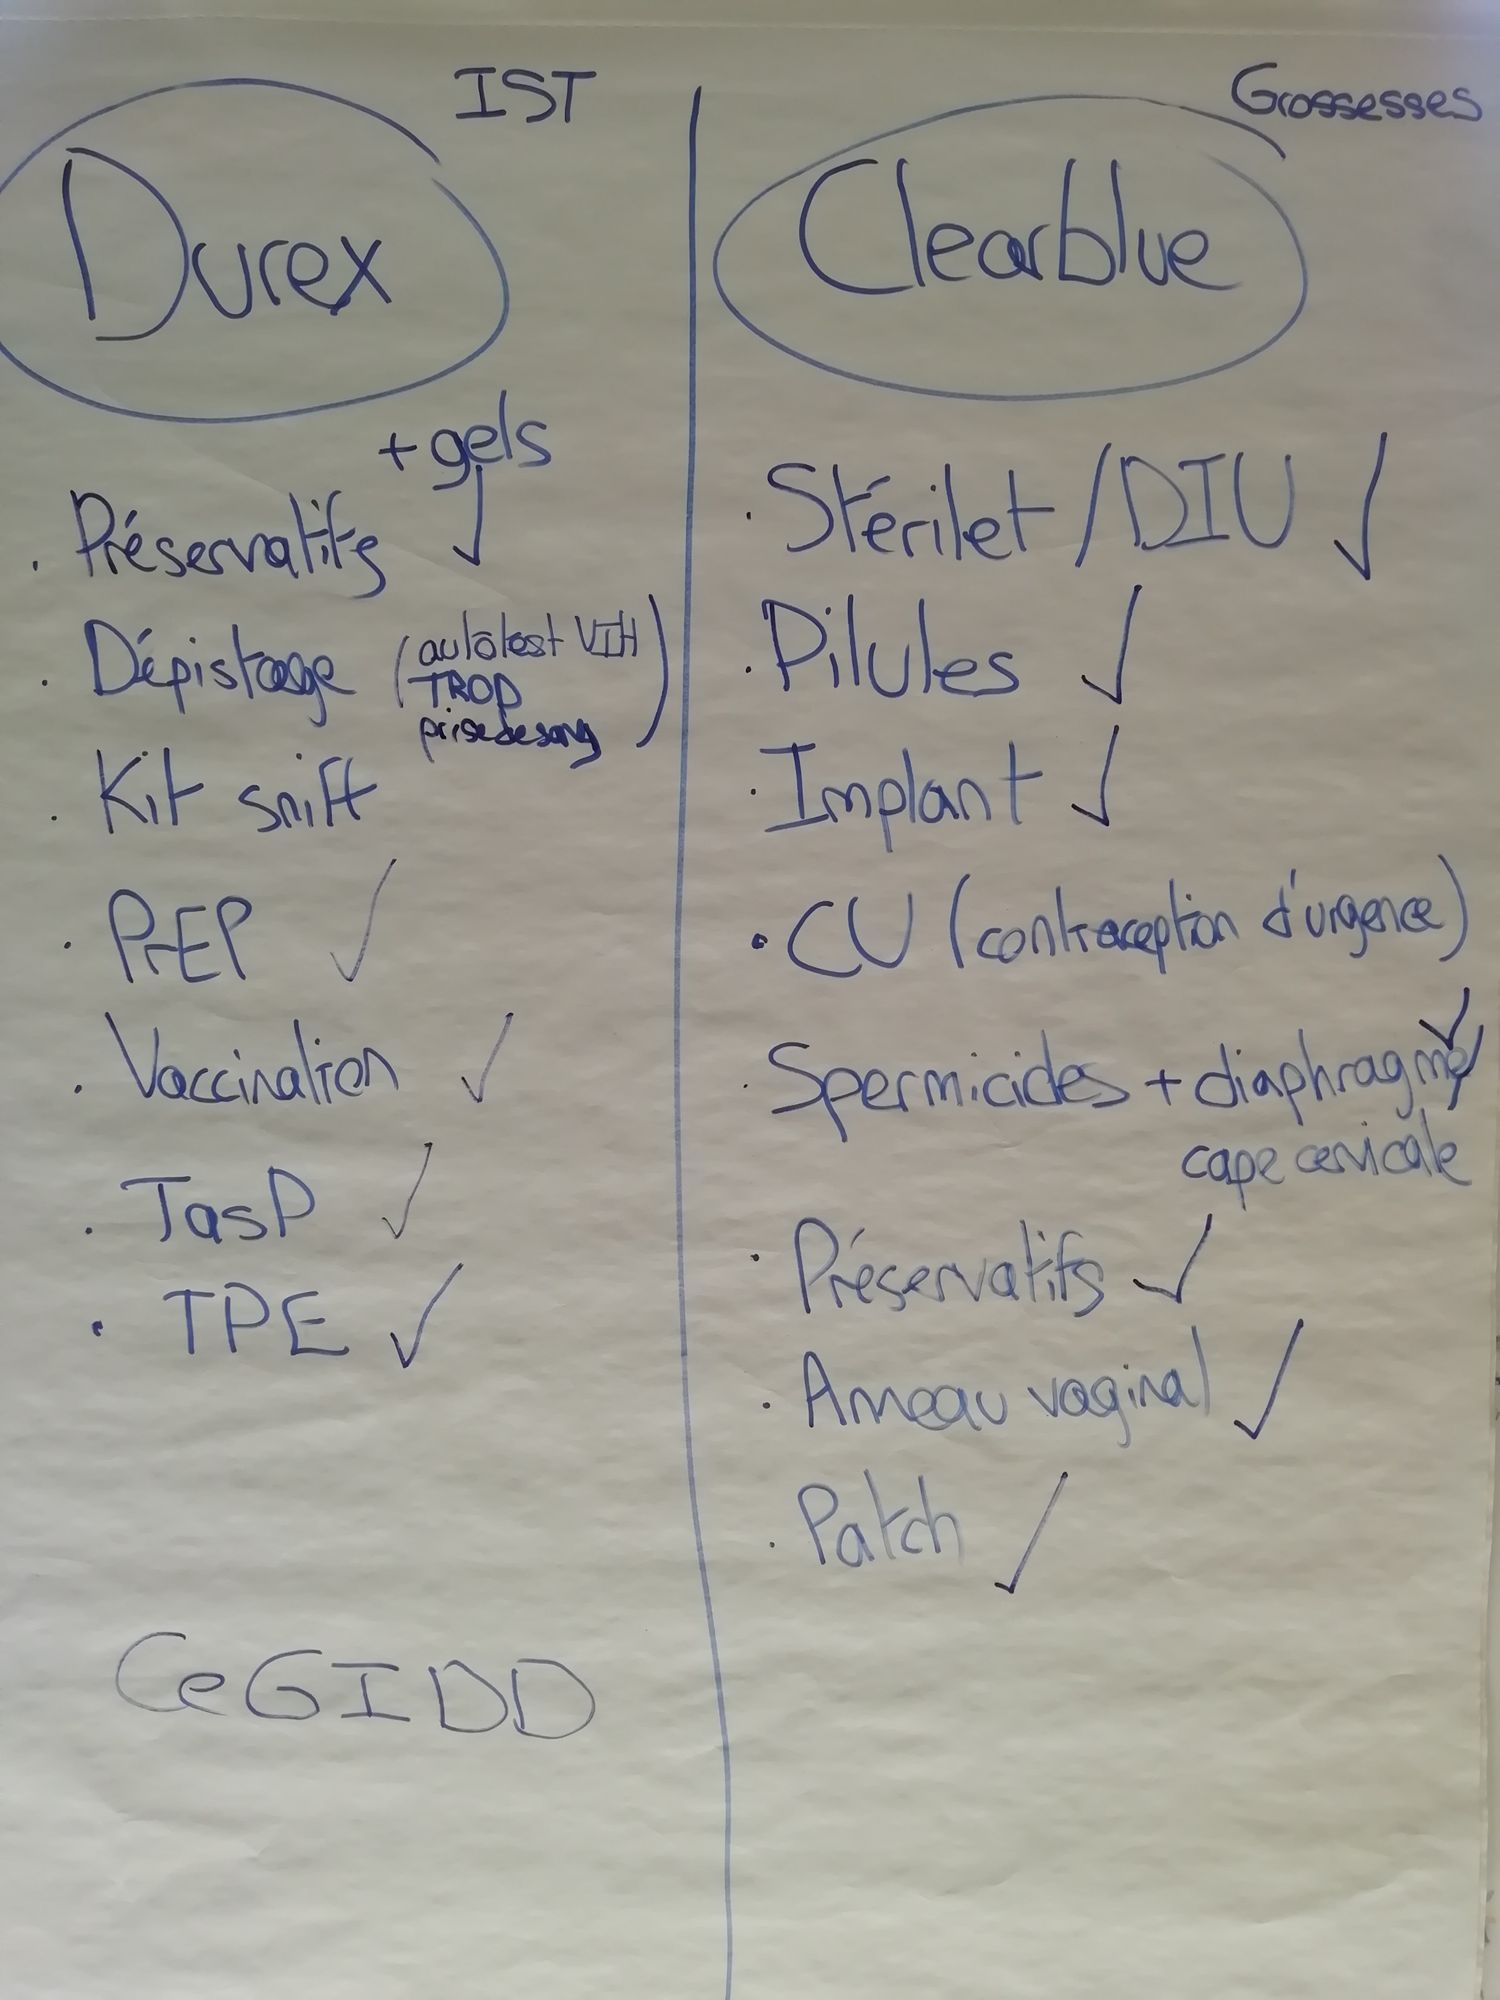 IST
Durex
+ gels
. Préservatifs ✓
. Dépistage (autotest VIH
TROD
prise de sang)
. Kit sniff
. PrEP ✓
. Vaccination ✓
. TasP ✓
. TPE ✓
CeGIDD
Grossesses
Clearblue
. Stérilet / DIU ✓
. Pilules ✓
. Implant ✓
. CU (contraception d'urgence) ✓
. Spermicides + diaphragme/
cape cervicale
. Préservatifs ✓
. Anneau vaginal ✓
. Patch ✓